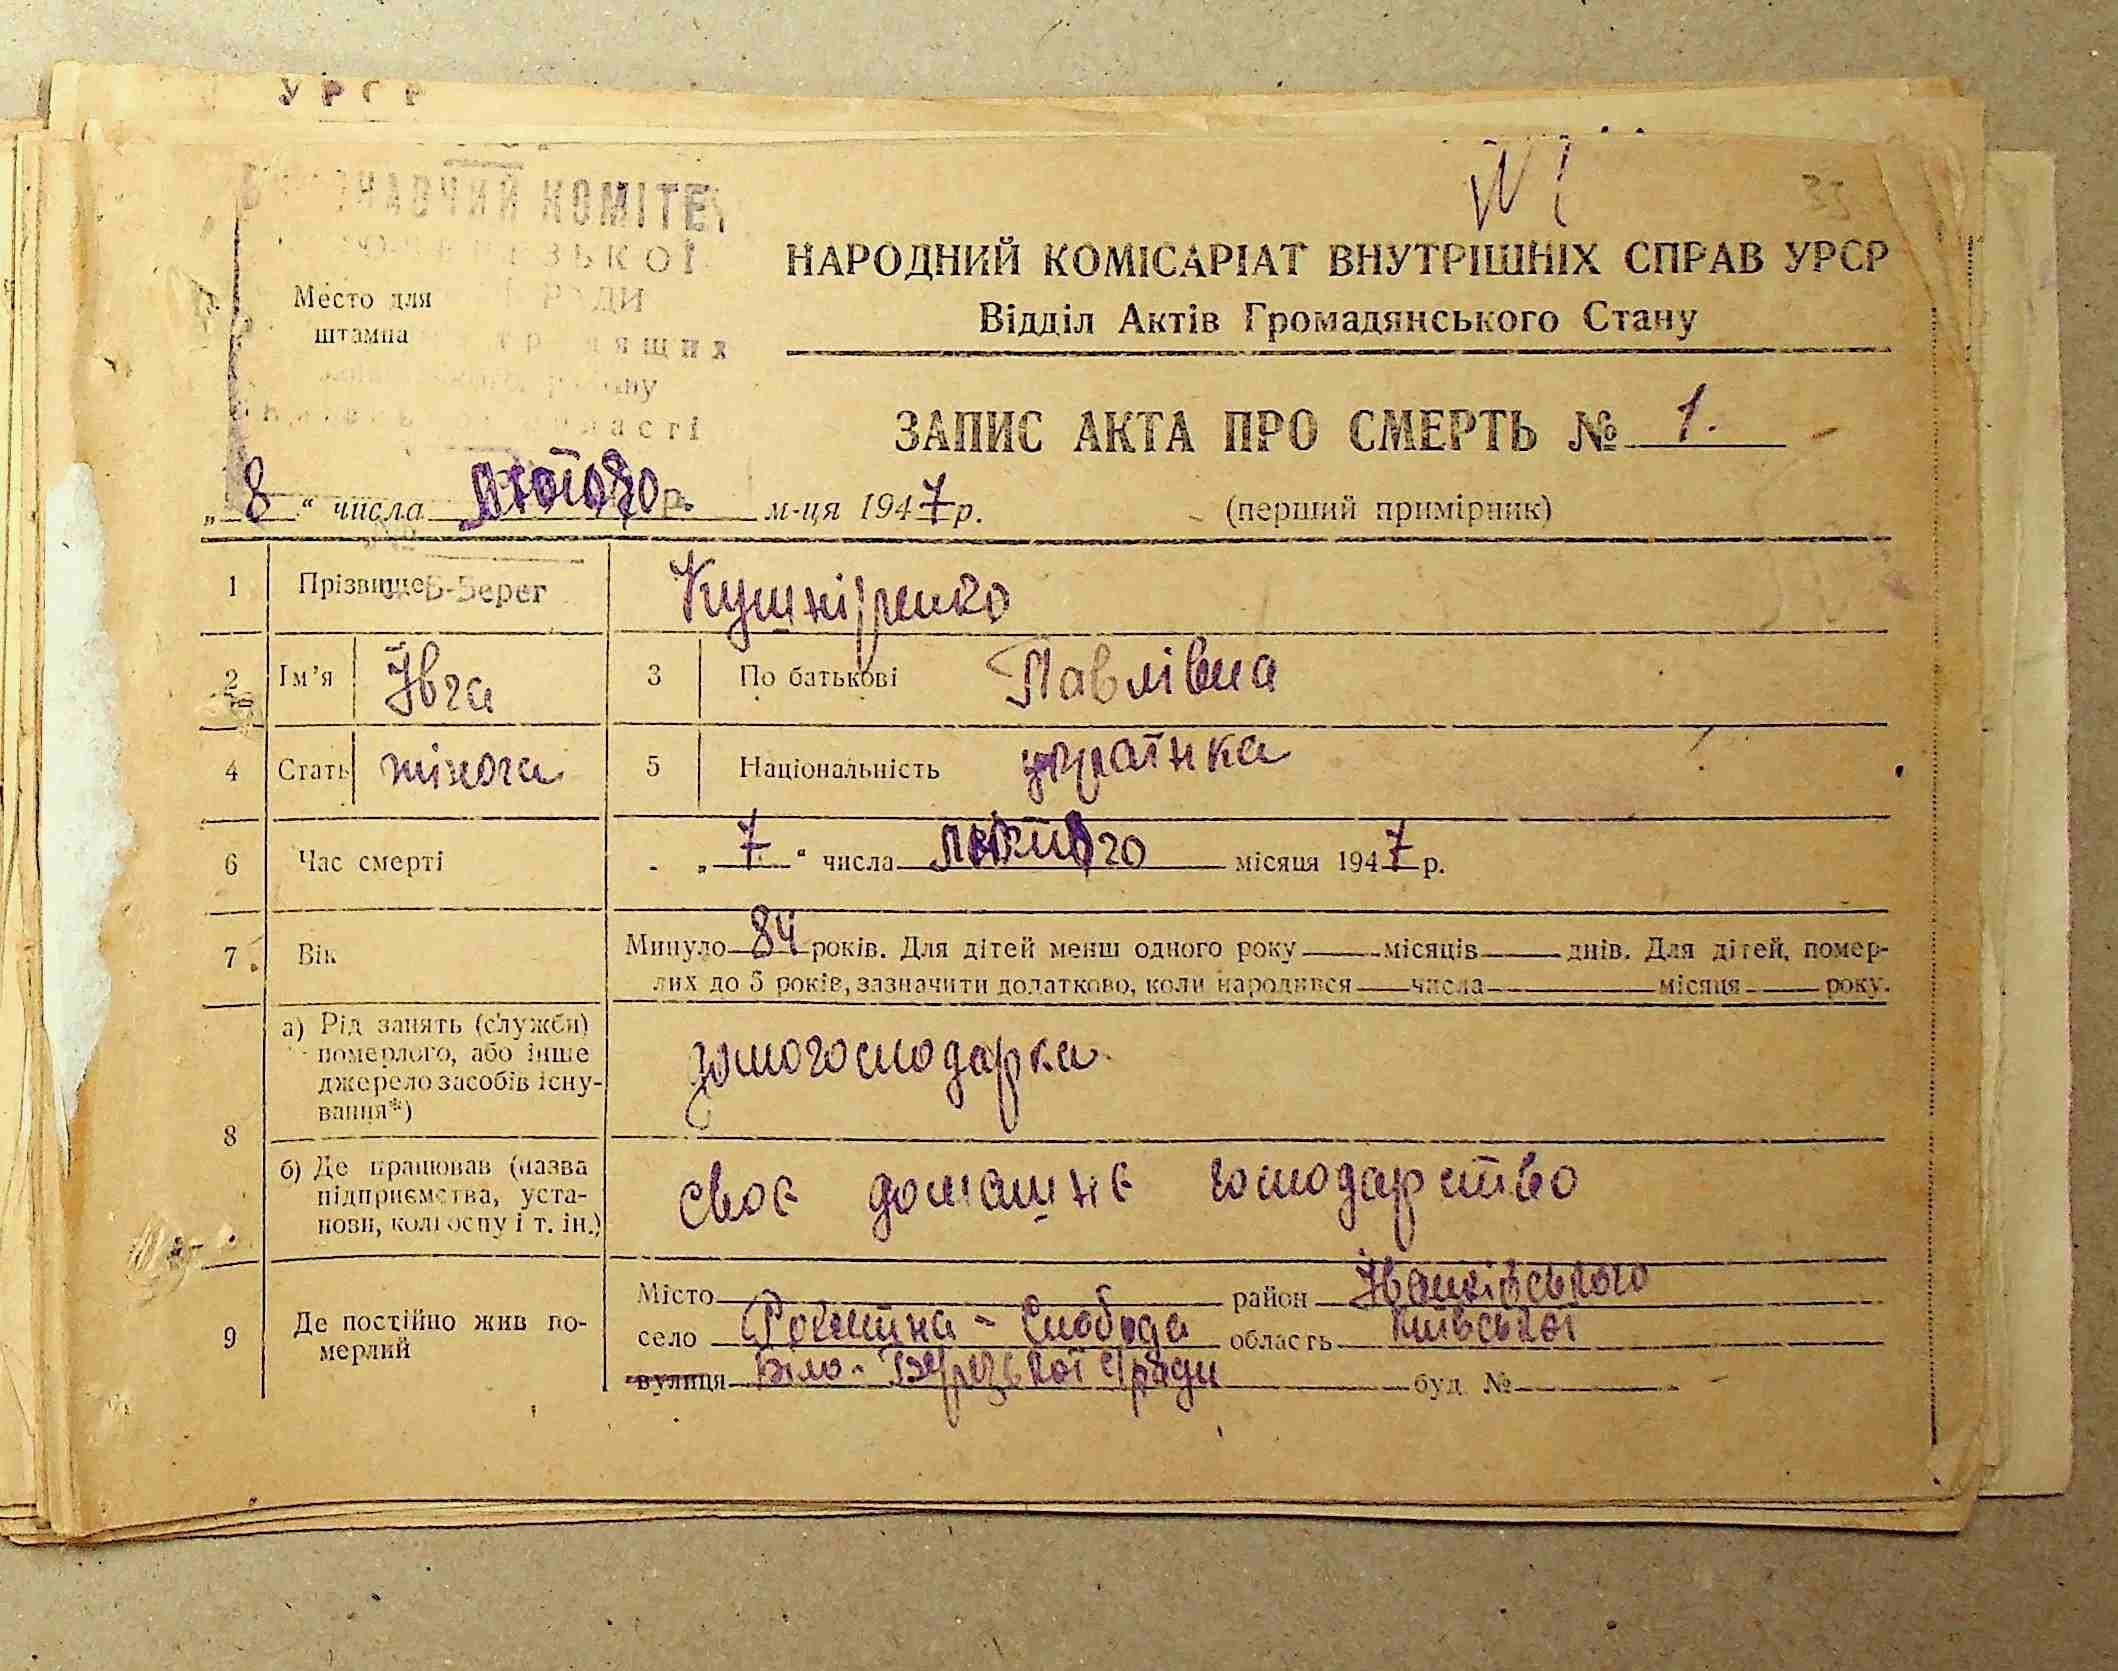 УРСР
№ 1
35
КОМІТЕ
ЗЬКОЇ
РАДИ
Место для
штампа
НАРОДНИЙ КОМІСАРІАТ ВНУТРІШНІХ СПРАВ УРСР
Відділ Актів Громадянського Стану
ЗАПИС АКТА ПРО СМЕРТЬ № 1.
„8“ числа лютого м-ця 1947 р. (перший примірник)
1 Прізвище Кушніренко
Б-Берег
2 Ім’я Ївга 3 По батькові Павлівна
4 Стать жіноча 5 Національність українка
6 Час смерті „7“ числа лютого місяця 1947 р.
7 Вік Минуло 84 років. Для дітей менш одного року місяців днів. Для дітей, помер-
лих до 5 років, зазначити додатково, коли народився числа місяця року.
8 а) Рід занять (служби) померлого, або інше джерело засобів існу-вання*) домогосподарка
б) Де працював (назва підприємства, уста-нови, колгоспу і т. ін.) своє домашнє господарство
9 Де постійно жив по-мерлий
Місто район Іванківського
село Слобода область Київської
вулиця Біло-Березької С/ради буд. №